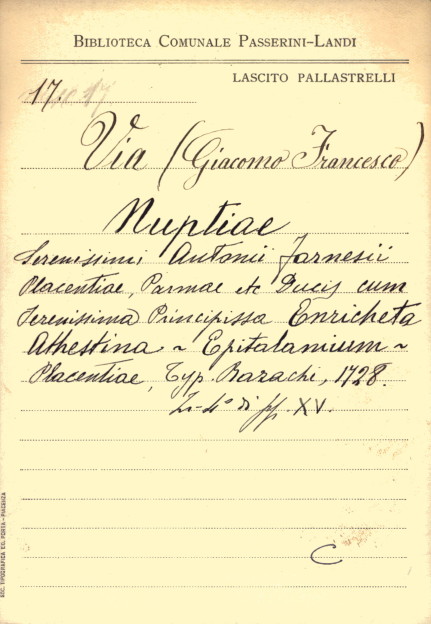 BIBLIOTECA COMUNALE PASSERINI-LANDI
LASCITO PALLASTRELLI
17.
Via (Giacomo Francesco)
Nuptiae
Serenissimi Antonii Farnesii
Placentiae, Parmae etc Ducis cum
Serenissima Principissa Enricheta
Athestina ~ Epitalamium ~
Placentiae, Typ. Bazachi, 1728.
In-4° di pp. XV.
C
SOC. TIPOGRAFICA EX. PORTA - PIACENZA